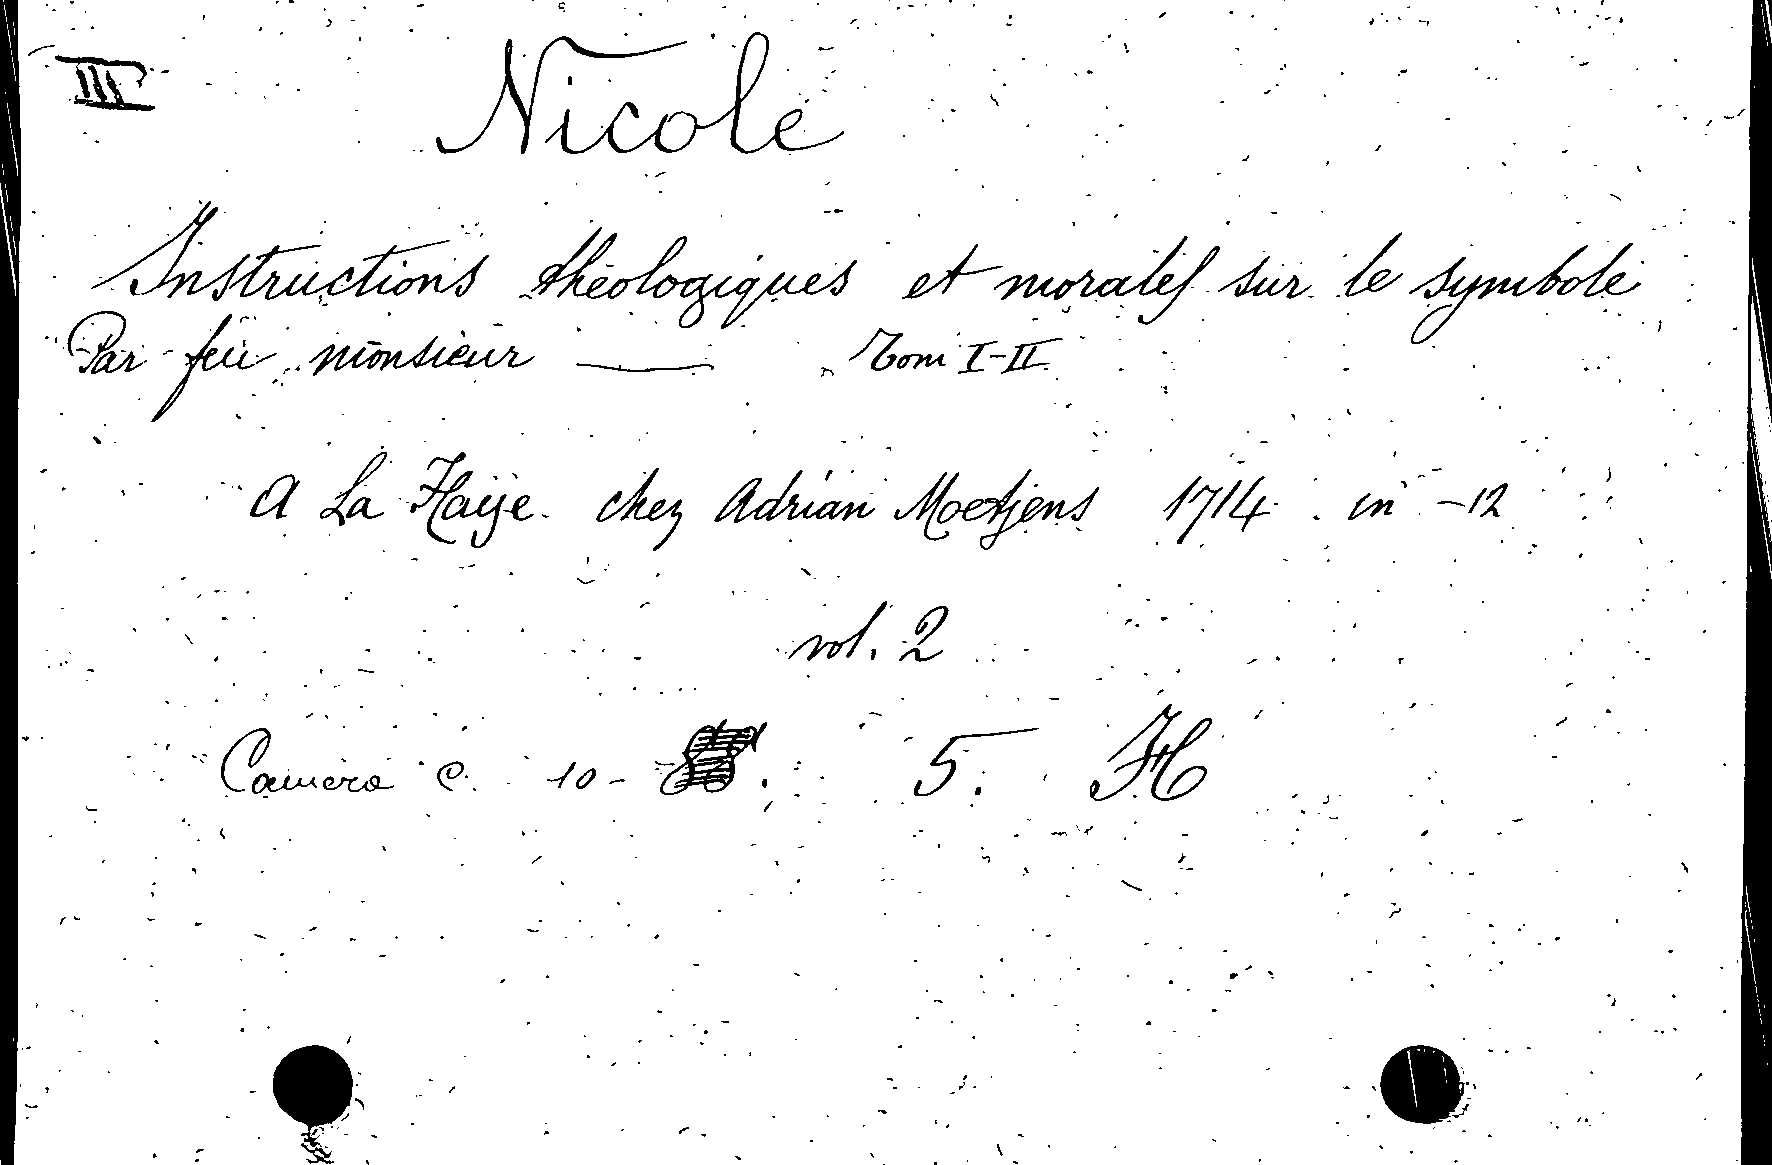 III
Nicole
Instructions théologiques et morales sur le symbole
Par feu monsieur —— Tom I-II
A La Haije chez Adrian Moetjens 1714 in -12
vol. 2
Camera C. 10- . 5. H